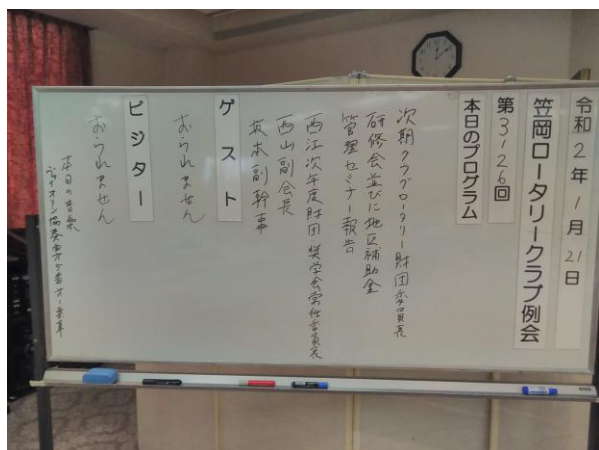 令和2年1月21日
笠岡ロータリークラブ例会
第3126回
本日のプログラム
次期クラブロータリー財団委員長
研修会並びに地区補助金
管理セミナー報告
西江次年度財団奨学会常任委員長
西山副会長
坂本副幹事
ゲスト
おられません
ビジター
おられません
本日の音楽